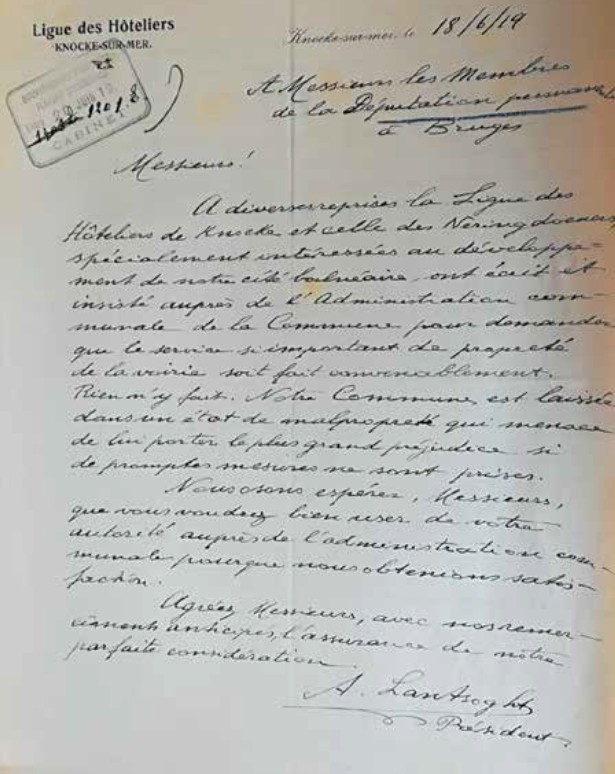 Ligue des Hôteliers
KNOCKE-SUR-MER.
Knocke-sur-mer, le 18/6/19
20 JUIN 19
1201 8
CABINET
A Messieurs les Membres
de la Députation permanente
à Bruges
Messieurs!
A diverses reprises la Ligue des
Hôteliers de Knocke et celle des Neringdoeners,
spécialement intéressées au développe-
ment de notre cité balnéaire, ont écrit et
insisté auprès de l'Administration com-
munale de la Commune pour demander
que le service si important de propreté
de la voirie soit fait convenablement.
Rien n'y fait. Notre Commune est laissée
dans un état de malpropreté qui menace
de lui porter le plus grand préjudice si
de promptes mesures ne sont prises.
Nous osons espérer, Messieurs,
que vous voudrez bien user de votre
autorité auprès de l'administration com-
munale pour que nous obtenions satis-
faction.
Agréez, Messieurs, avec nos remer-
ciements anticipés, l'assurance de notre
parfaite considération.
A. Lantsoght
Président